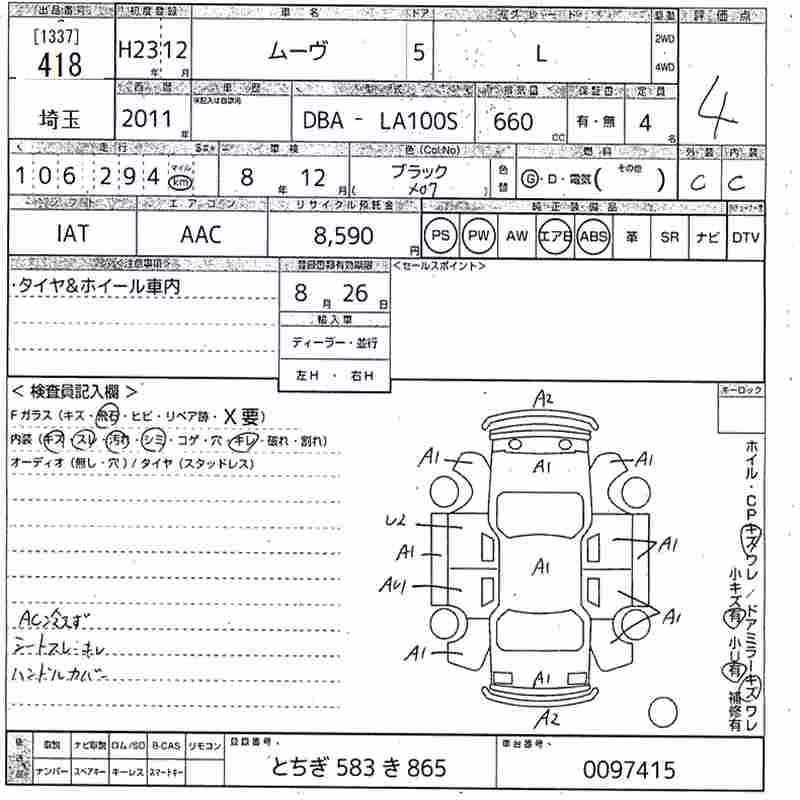 出品番号 初度登録 車名 ドア グレード 駆動 評価点
[1337]
418 H23 12 ムーヴ 5 L 2WD 4WD 4
年 月
埼玉 2011 年 車歴 型式 排気量 保証書 定員
DBA - LA100S 660 CC 有・無 4 名
走行 車検 色(Col:No) 燃料 外装 内装
106,294 マイル km 8 年 12 月 ブラック X07 色替 G・D・電気( その他 ) C C
シフト エアコン リサイクル預託金 純正装備品
IAT AAC 8,590 円 PS PW AW エアB ABS 革 SR ナビ DTV
注意事項 登録書類有効期限 <セールスポイント>
・タイヤ&ホイール車内 8 月 26 日
輸入車
ディーラー・並行
左H ・ 右H
<検査員記入欄> キーロック
Fガラス(キズ・飛石・ヒビ・リペア跡・X要)
内装(キズ・スレ・汚れ・シミ・コゲ・穴・キレ・破れ・割れ)
オーディオ(無し・穴)/タイヤ(スタッドレス)
A2
A1 A1 A1
U2
A1 A1 A1
AU1 A1
A1 A1
A2
ホイル・CPキズワレ/ドアミラーキズワレ
小キズ有 小U有 補修有
AC冷えず
シートスレ・キレ
ハンドルカバー
後送品 取説 ナビ取説 ロム/SD B-CAS リモコン 登録番号 車台番号
ナンバー スペアキー キーレス スマートキー とちぎ 583 き 865 0097415